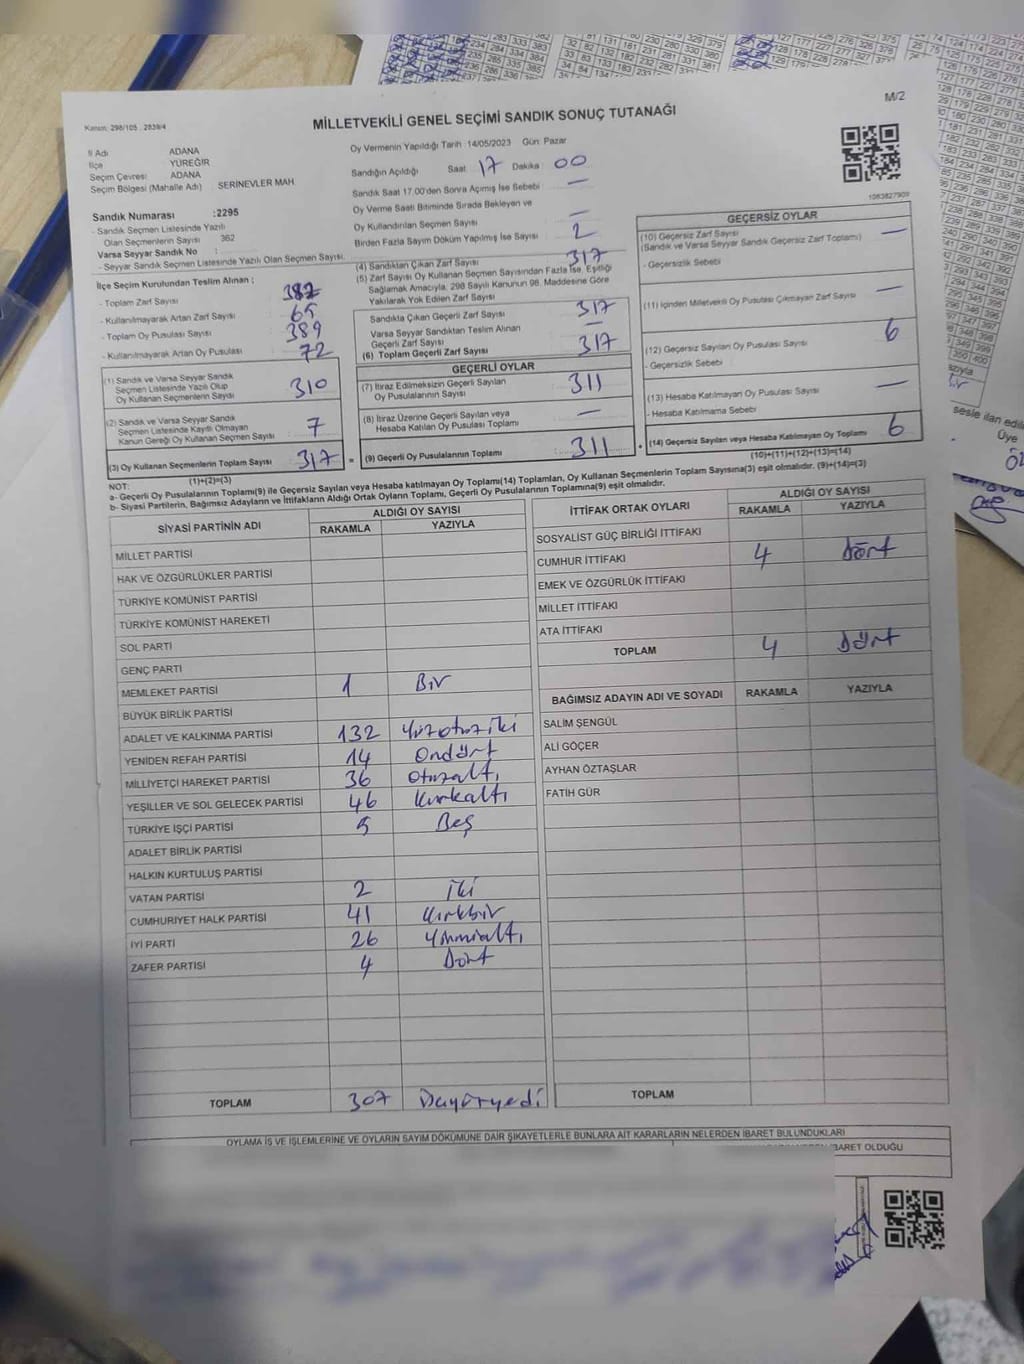 Kanun: 298/105 , 2839/4
M/2
MİLLETVEKİLİ GENEL SEÇİMİ SANDIK SONUÇ TUTANAĞI
İl Adı ADANA
İlçe YÜREĞİR
Seçim Çevresi ADANA
Seçim Bölgesi (Mahalle Adı) : SERİNEVLER MAH
Sandık Numarası :2295
- Sandık Seçmen Listesinde Yazılı
Olan Seçmenlerin Sayısı 362
Varsa Seyyar Sandık No :
- Seyyar Sandık Seçmen Listesinde Yazılı Olan Seçmen Sayısı
Oy Vermenin Yapıldığı Tarih 14/05/2023 Gün: Pazar
Sandığın Açıldığı Saat 17 Dakika 00
Sandık Saat 17.00'den Sonra Açılmış İse Sebebi —
Oy Verme Saati Bitiminde Sırada Bekleyen ve
Oy Kullandırılan Seçmen Sayısı —
Birden Fazla Sayım Döküm Yapılmış İse Sayısı 2
1083827909
İlçe Seçim Kurulundan Teslim Alınan ;
- Toplam Zarf Sayısı 382
- Kullanılmayarak Artan Zarf Sayısı 65
- Toplam Oy Pusulası Sayısı 389
- Kullanılmayarak Artan Oy Pusulası 72
(1) Sandık ve Varsa Seyyar Sandık
Seçmen Listesinde Yazılı Olup
Oy Kullanan Seçmenlerin Sayısı 310
(2) Sandık ve Varsa Seyyar Sandık
Seçmen Listesinde Kayıtlı Olmayan
Kanun Gereği Oy Kullanan Seçmen Sayısı 7
(3) Oy Kullanan Seçmenlerin Toplam Sayısı 317
(1)+(2)=(3)
(4) Sandıktan Çıkan Zarf Sayısı 317
(5) Zarf Sayısı Oy Kullanan Seçmen Sayısından Fazla İse, Eşitliği
Sağlamak Amacıyla, 298 Sayılı Kanunun 98. Maddesine Göre
Yakılarak Yok Edilen Zarf Sayısı
Sandıkta Çıkan Geçerli Zarf Sayısı 317
Varsa Seyyar Sandıktan Teslim Alınan
Geçerli Zarf Sayısı —
(6) Toplam Geçerli Zarf Sayısı 317
GEÇERLİ OYLAR
(7) İtiraz Edilmeksizin Geçerli Sayılan
Oy Pusulalarının Sayısı 311
(8) İtiraz Üzerine Geçerli Sayılan veya
Hesaba Katılan Oy Pusulası Toplamı —
= (9) Geçerli Oy Pusulalarının Toplamı 311
GEÇERSİZ OYLAR
(10) Geçersiz Zarf Sayısı —
(Sandık ve Varsa Seyyar Sandık Geçersiz Zarf Toplamı)
- Geçersizlik Sebebi
(11) İçinden Milletvekili Oy Pusulası Çıkmayan Zarf Sayısı —
(12) Geçersiz Sayılan Oy Pusulası Sayısı 6
- Geçersizlik Sebebi
(13) Hesaba Katılmayan Oy Pusulası Sayısı —
- Hesaba Katılmama Sebebi
+ (14) Geçersiz Sayılan veya Hesaba Katılmayan Oy Toplamı 6
(10)+(11)+(12)+(13)=(14)
NOT:
a- Geçerli Oy Pusulalarının Toplamı(9) ile Geçersiz Sayılan veya Hesaba katılmayan Oy Toplamı(14) Toplamları, Oy Kullanan Seçmenlerin Toplam Sayısına(3) eşit olmalıdır. (9)+(14)=(3)
b- Siyasi Partilerin, Bağımsız Adayların ve İttifakların Aldığı Ortak Oyların Toplamı, Geçerli Oy Pusulalarının Toplamına(9) eşit olmalıdır.
SİYASİ PARTİNİN ADI ALDIĞI OY SAYISI
RAKAMLA YAZIYLA
MİLLET PARTİSİ
HAK VE ÖZGÜRLÜKLER PARTİSİ
TÜRKİYE KOMÜNİST PARTİSİ
TÜRKİYE KOMÜNİST HAREKETİ
SOL PARTİ
GENÇ PARTİ
MEMLEKET PARTİSİ 1 Bir
BÜYÜK BİRLİK PARTİSİ
ADALET VE KALKINMA PARTİSİ 132 Yüzotuziki
YENİDEN REFAH PARTİSİ 14 Ondört
MİLLİYETÇİ HAREKET PARTİSİ 36 Otuzaltı
YEŞİLLER VE SOL GELECEK PARTİSİ 46 Kırkaltı
TÜRKİYE İŞÇİ PARTİSİ 5 Beş
ADALET BİRLİK PARTİSİ
HALKIN KURTULUŞ PARTİSİ
VATAN PARTİSİ 2 İki
CUMHURİYET HALK PARTİSİ 41 Kırkbir
İYİ PARTİ 26 Yirmialtı
ZAFER PARTİSİ 4 Dört
TOPLAM 307
İTTİFAK ORTAK OYLARI ALDIĞI OY SAYISI
RAKAMLA YAZIYLA
SOSYALİST GÜÇ BİRLİĞİ İTTİFAKI
CUMHUR İTTİFAKI 4 Dört
EMEK VE ÖZGÜRLÜK İTTİFAKI
MİLLET İTTİFAKI
ATA İTTİFAKI
TOPLAM 4 Dört
BAĞIMSIZ ADAYIN ADI VE SOYADI RAKAMLA YAZIYLA
SALİM ŞENGÜL
ALİ GÖÇER
AYHAN ÖZTAŞLAR
FATİH GÜR
TOPLAM
OYLAMA İŞ VE İŞLEMLERİNE VE OYLARIN SAYIM DÖKÜMÜNE DAİR ŞİKAYETLERLE BUNLARA AİT KARARLARIN NELERDEN İBARET BULUNDUKLARI
İBARET OLDUĞU
sesle ilan edil
Üye